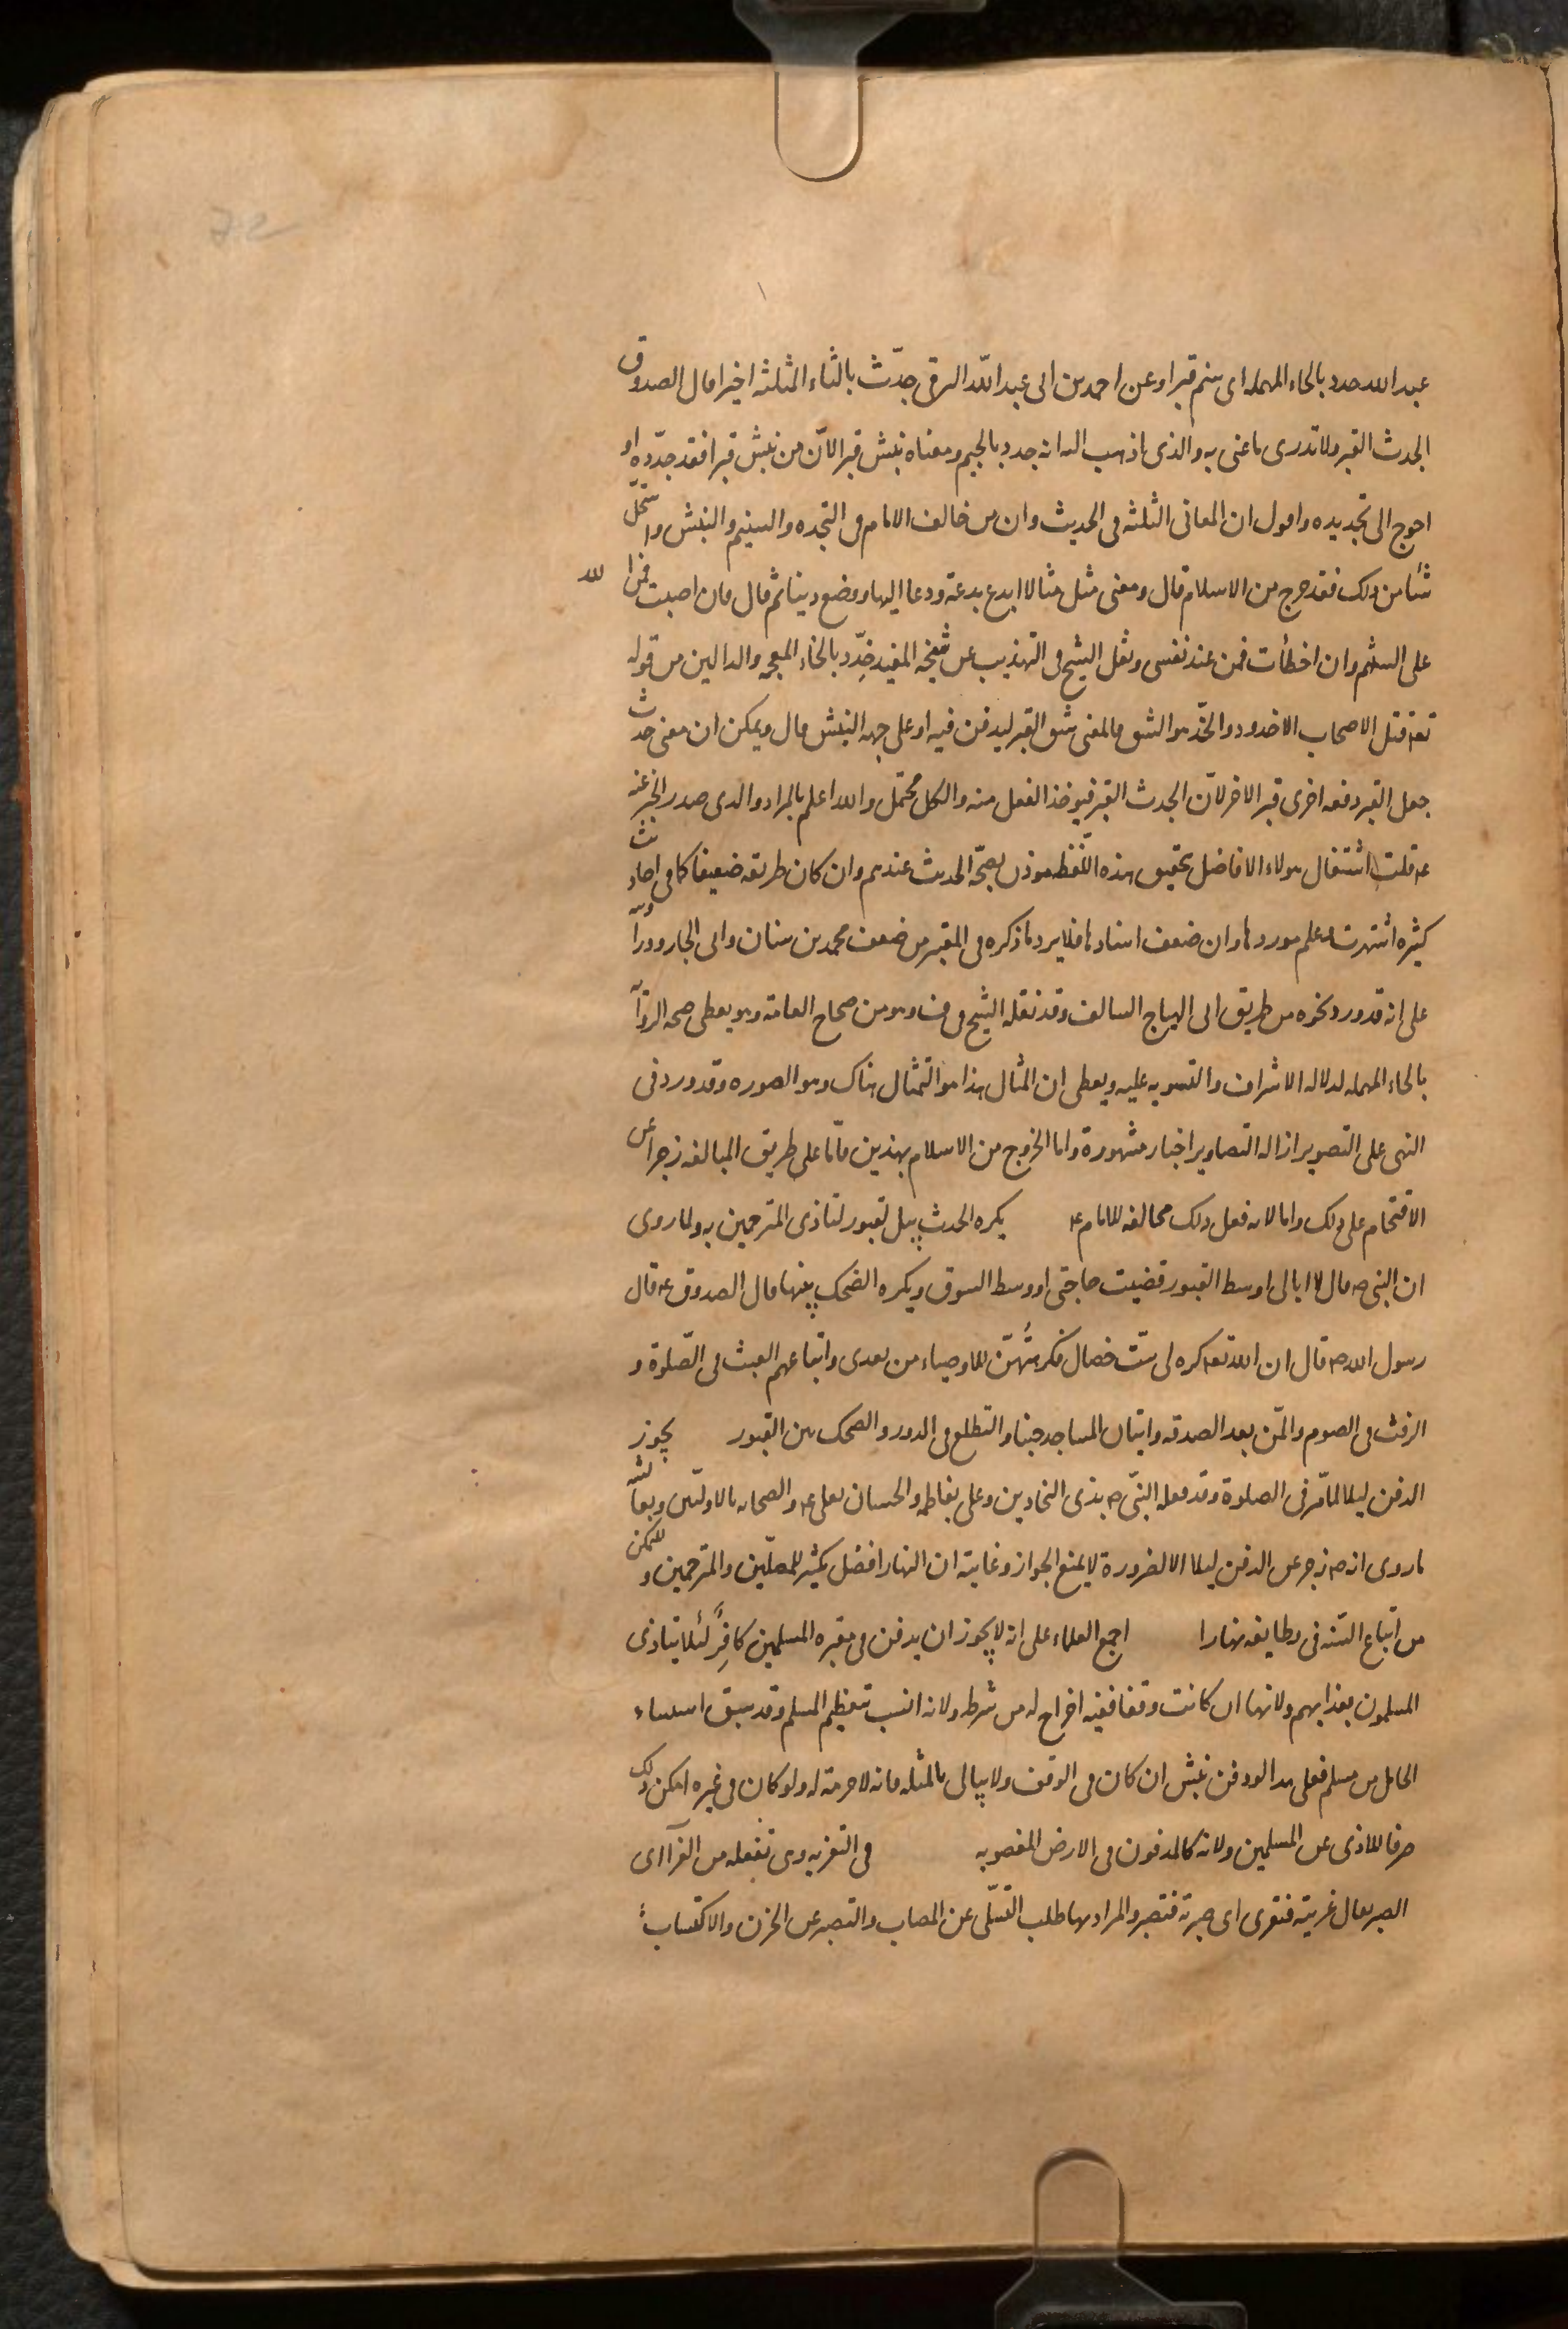 عبد الله حدد بالحاء المهمله اى سنم قبرا وعن احمد بن ابى عبد اللّه البرقى جدّث بالثاء المثلثه اخيرا قال الصدوق
الجدث القبر ولا ندرى ما عنى به والذى اذهب اليه انه جدد بالجيم ومعناه نبش قبر الانّ من نبش قبرا فقد جدّده او
احوج الى تجديده واقول ان المعانى الثلثه فى الحديث وان من خالف الامام فى التجديد والتسنيم والنبش واستحلّ
شئا من ذلك فقد خرج من الاسلام قال ومعنى مثل مثالا ابدع بدعة ودعا اليها ووضع دينا ثم قال فان اصبت فمن الله
على السنتهم وان اخطأت فمن عند نفسى ونقل الشيخ فى التهذيب عن شيخه المفيد خدّد بالخاء المعجمه والدالين من قوله
تعه قتل الاصحاب الاخدود والخدّ هو الشق فالمعنى شق القبر ليدفن فيه او على جهه النبش قال ويمكن ان معنى جدث
جعل القبر دفعه اخرى قبر الاخر لانّ الجدث القبر فيوخذ الفعل منه والكل محتمل والله اعلم بالمراد والذى صدر الخبر عنه
عم قلت اشتغال هولاء الافاضل بتحقيق هذه اللّفظ موذن بصحّة الحديث عندهم وان كان طريقه ضعيفا كما فى احاديث
كثيره اشتهرت وعلم موردها وان ضعف اسنادها فلا يرد ما ذكره فى المعتبر من ضعف محمد بن سنان وابى الجارود راويه
على انه قد ورد نحوه من طريق ابى الهياج السالف وقد نقله الشيخ فى ف وهو من صحاح العامة وهو يعطى صحه الروآيه
بالحاء المهمله لدلاله الاشراف والتسويه عليه ويعطى ان المثال هذا هو التمثال هناك وهو الصوره وقد ورد فى
النهى على التصوير ازاله التصاوير اخبار مشهورة واما الخروج من الاسلام بهذين فامّا على طريق المبالغه زجرا عن
الاقتحام على ذلك واما لانه فعل ذلك مخالفه للامام عم يكره الحدث بين القبور لتاذى المترحمين به ولما روى
ان النبى صم قال لا ابالى اوسط القبور قضيت حاجتى او وسط السوق ويكره الضحك بينها قال الصدوق عم قال
رسول الله صم قال ان الله تعه كره لى ستّ خصال فكرهتهنّ للاوصياء من بعدى واتباعهم العبث فى الصّلوة و
الرفث فى الصوم والمّن بعد الصدقه واتيان المساجد جنبا والتطلع فى الدور والضحك بين القبور يجوز
الدفن ليلا لما مرّ فى الصلوة وقد فعله النبّى صم بذى النجادين وعلى بفاطمه والحسنان بعلى عم والصحابه بالاولين وبعآئشه
ما روى انه صم زجر عن الدفن ليلا الا لضرورة لا يمنع الجواز وغايته ان النهار افضل لكثير للمصلّين والمترحمين وللتمكن
من اتباع السّنه فى وظايفه نهارا اجمع العلماء على انه لا يجوز ان يدفن فى مقبره المسلمين كافِرً لئلا يتاذى
المسلمون بعذابهم ولانها ان كانت وقفا ففيه اخراج له من شرطه ولانه انسب بتعظيم المسلم وقد سبق استثناء
الحامل من مسلم فعلى هذا لو دفن نبش ان كان فى الوقف ولا يبالى بالمثله فانه لا حرمة له ولو كان فى غيره امكن ذلك
صرفا للاذى عن المسلمين ولانه كالمدفون فى الارض المغصوبه فى التعزيه وهى تفعله من العزآ اى
الصبر يقال عزيته فتعزى اى صبرته فتصبر والمراد بها طلب التسّلى عن المصاب والتصبر عن الحزن والاكتساب